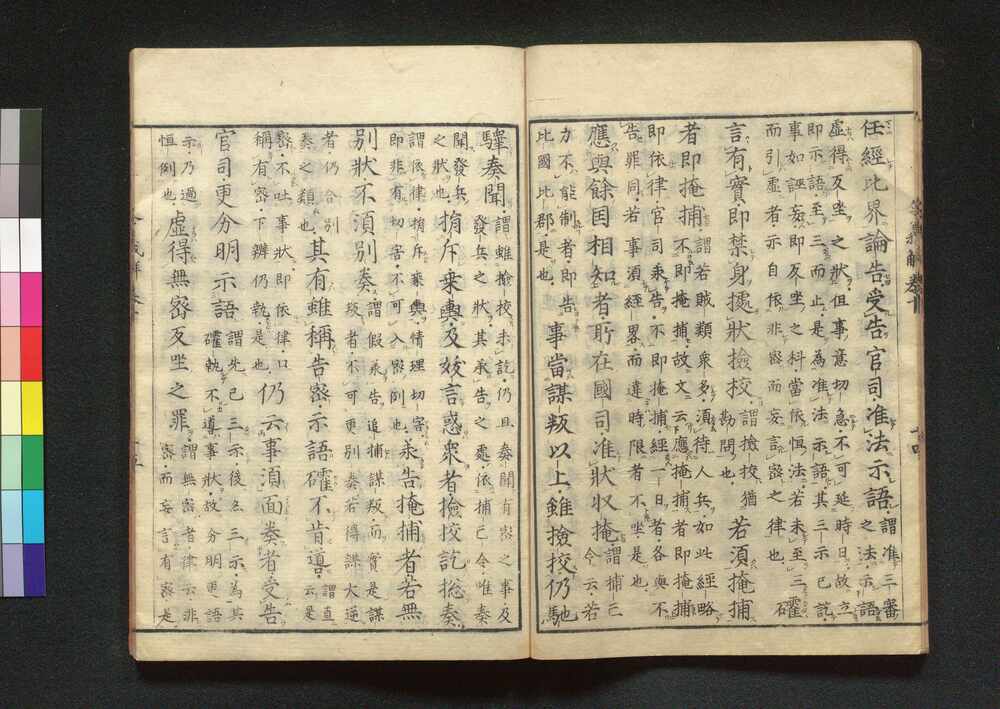 任經比界論告受告官司准法示語謂准三審
之法示語
虛得反坐之狀但事意切急不可延時日故立
即示語至三而止是為准法示語其三示已訖
事如誣妄即反坐之科當依恒法若未至三確
而引虛者示自依非密而妄言密之律也
言有實即禁身據狀撿挍謂撿挍猶
勘問也若須掩捕
者即掩捕謂若賊類衆多須待人兵如此經略
不即掩捕故文云應掩捕者即掩捕
即依律官司承告不即掩捕經一日者各與不
告罪同若事須經略而違時限者不坐是也
應與餘国相知者所在國司准狀収掩謂捕亡
令云若
力不能制者即告
比國比郡是也事當謀叛以上雖撿挍仍馳
驛奏聞謂雖撿挍未訖仍且奏聞有密之事及
發兵之狀其承告之處依捕亡令唯奏
聞發兵
之狀也指斥乗輿及妖言惑衆者撿挍訖捴奏
謂依律指斥乗輿情理切害
即非有切害不可入密例也承告掩捕者若無
別狀不須別奏謂假承告追捕謀叛而實是謀
叛者不可更別奏若得謀大逆
者仍合別
奏之類也其有雖稱告密示語確不肯導謂直
云是
密不吐事狀即依律口
稱有密下辨仍執是也仍云事須面奏者受告
官司更分明示語謂先已三示後更三示為其
確執不導事狀故分明更語
示乃過
恒例也虛得無密反坐之罪謂無密者律云非
密而妄言有密是